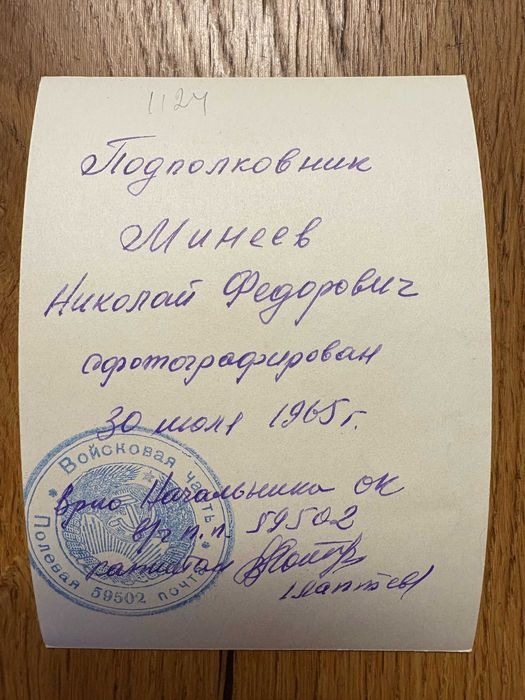 1124
Подполковник
Минеев
Николай Федорович
сфотографирован
30 июля 1965 г.
Врио Начальника ОК
в/ч п.п. 59502
капитан
/Лаптев/
Войсковая часть
Полевая 59502 почта